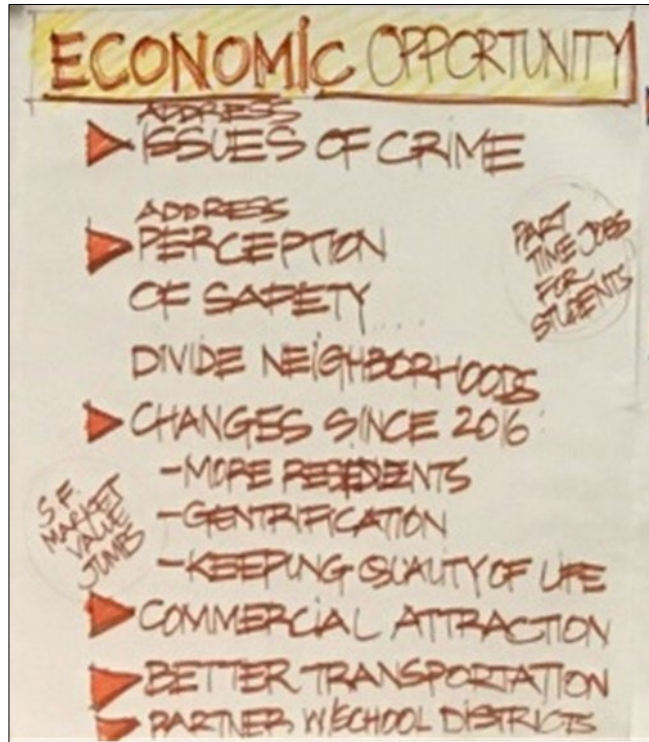 ECONOMIC OPPORTUNITY
ADDRESS
ISSUES OF CRIME
ADDRESS
PERCEPTION
OF SAFETY
DIVIDE NEIGHBORHOODS
PART
TIME JOBS
FOR
STUDENTS
CHANGES SINCE 2016:
-MORE RESIDENTS
-GENTRIFICATION
-KEEPING QUALITY OF LIFE
S.F.
MARKET
VALUE
JUMBS
COMMERCIAL ATTRACTION
BETTER TRANSPORTATION
PARTNER W/SCHOOL DISTRICTS